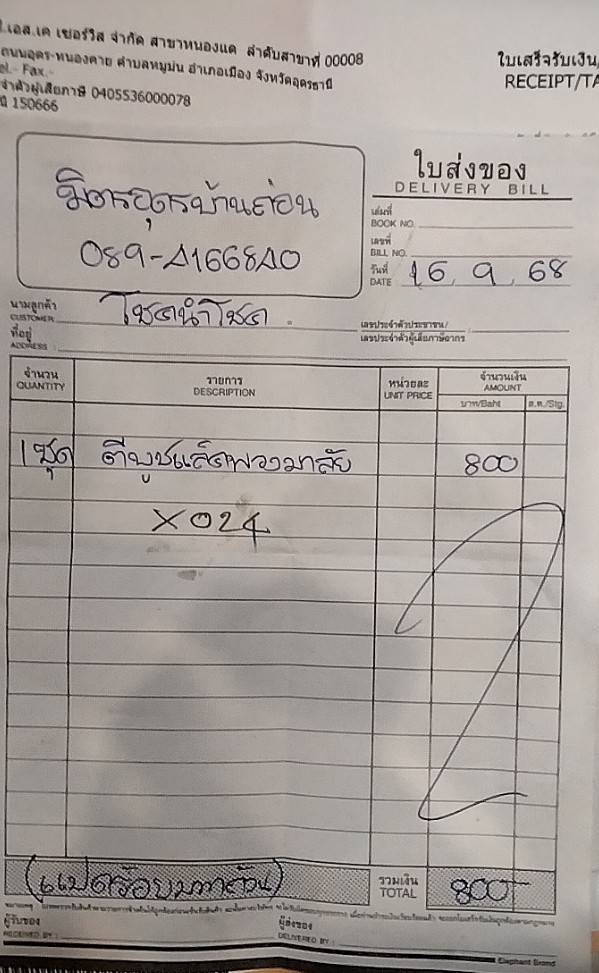 .เอส.เค เซอร์วิส จำกัด สาขาหนองแด ลำดับสาขาที่ 00008
ถนนอุดร-หนองคาย ตำบลหมูม่น อำเภอเมือง จังหวัดอุดรธานี
el.- Fax.-
จำตัวผู้เสียภาษี 0405536000078
150666
ใบเสร็จรับเงิน
RECEIPT/TA
มิตรอุดรบ้านถ่อน
089-4166840
ใบส่งของ
DELIVERY BILL
เล่มที่
BOOK NO.
เลขที่
BILL NO.
วันที่
DATE 16, 9, 68
นามลูกค้า
CUSTOMER โชคนำโชค
ที่อยู่
ADDRESS
เลขประจำตัวประชาชน/
เลขประจำตัวผู้เสียภาษีอากร
จำนวน QUANTITY รายการ DESCRIPTION หน่วยละ UNIT PRICE จำนวนเงิน AMOUNT
บาท/Baht ส.ต./Stg.
1 ชุด ตีบูชแล็คพวงมาลัย 800
X024
(แปดร้อยบาทถ้วน) รวมเงิน TOTAL 800
ผู้รับของ
RECEIVED BY :
ผู้ส่งของ
DELIVERED BY :
Elephant Brand